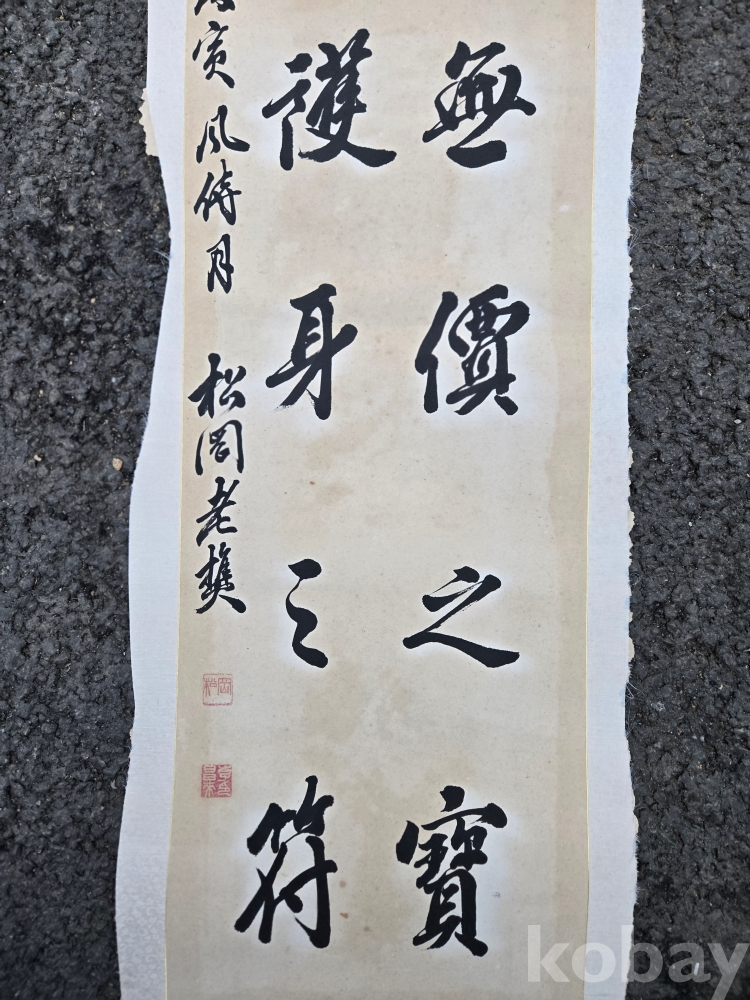 無價之寶
護身之符
寅 風待月 松岡老樵
kobay